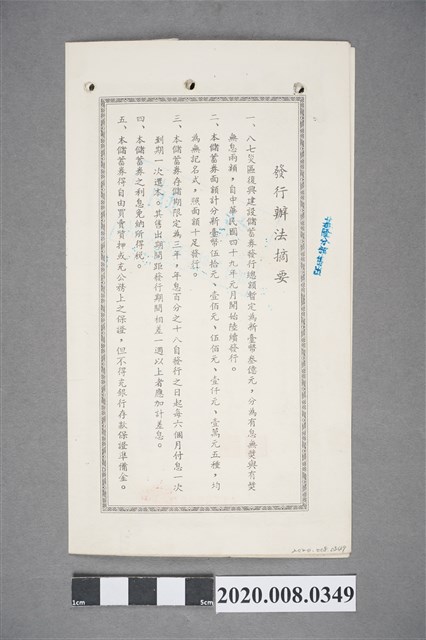 發行辦法摘要
一、八七災區復興建設儲蓄券發行總額暫定為新臺幣叁億元，分為有息無獎與有獎
無息兩類，自中華民國四十九年元月開始陸續發行。
二、本儲蓄券面額計分新臺幣伍拾元、壹佰元、伍佰元、壹仟元、壹萬元五種，均
為無記名式，照面額十足發行。
三、本儲蓄券存儲期限定為三年，年息百分之十八自發行之日起每六個月付息一次
到期一次還本。其售出期間距發行期間相差一週以上者應加計差息。
四、本儲蓄券之利息免納所得稅。
五、本儲蓄券得自由買賣質押或充公務上之保證，但不得充銀行存款保證準備金。
2020.008.0349
1cm
5cm
2020.008.0349